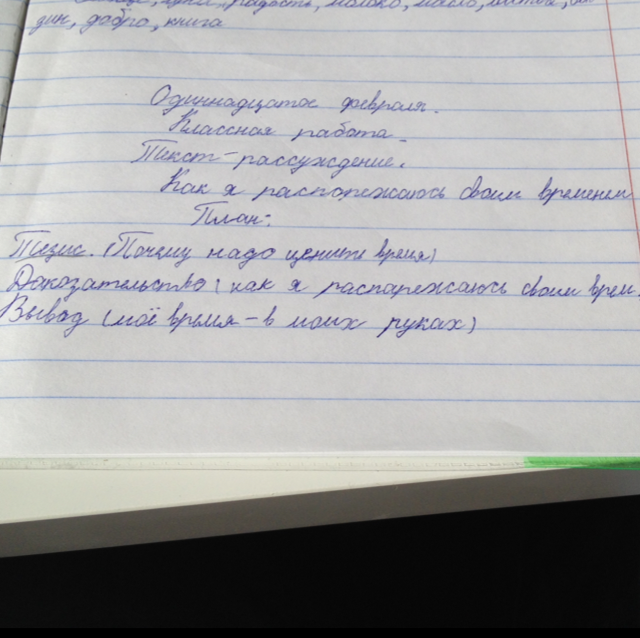 радость, молоко, масло,
дин, добро, книга
Одиннадцатое февраля.
Классная работа.
Текст-рассуждение.
Как я распорежаюсь своим временем
План:
Тезис. (Почему надо ценить время)
Доказательство (как я распарежаюсь своим врем.
Вывод (моё время - в моих руках)